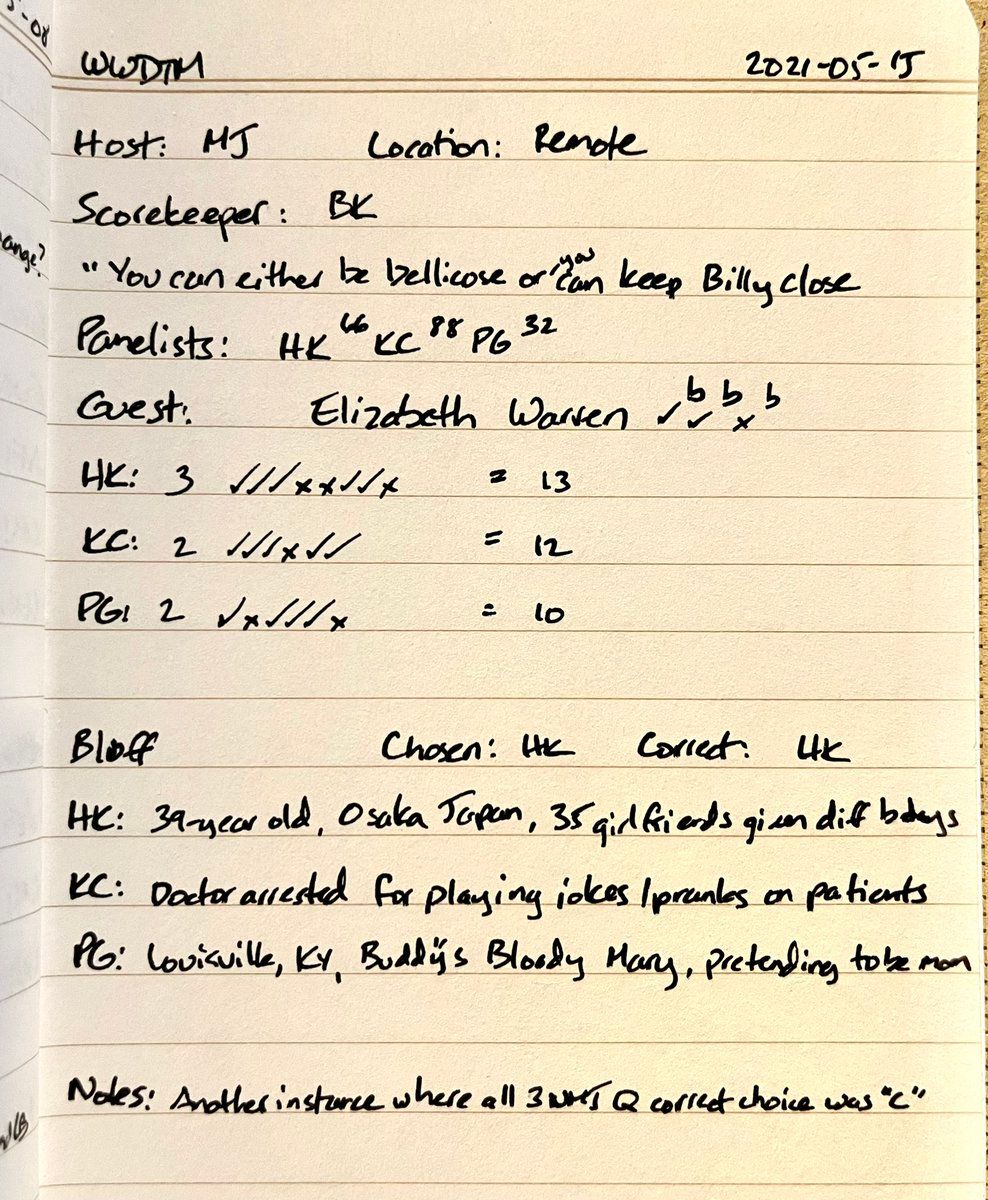 WWDTM 2021-05-15
Host: MJ Location: Remote
Scorekeeper: BK
"You can either be bellicose or you can keep Billy close
Panelists: HK 66 KC 88 PG 32
Guest: Elizabeth Warren ✓ b ✓ b x b
HK: 3 ✓✓✓xx✓✓x = 13
KC: 2 ✓✓✓x✓✓ = 12
PG: 2 ✓x✓✓✓x = 10
Bluff Chosen: HK Correct: HK
HK: 39-year old, Osaka Japan, 35 girlfriends given diff bdays
KC: Doctor arrested for playing jokes/pranks on patients
PG: Louisville, KY, Buddy's Bloody Mary, pretending to be mom
Notes: Another instance where all 3 NMJ Q correct choice was "C"
-08
ange?